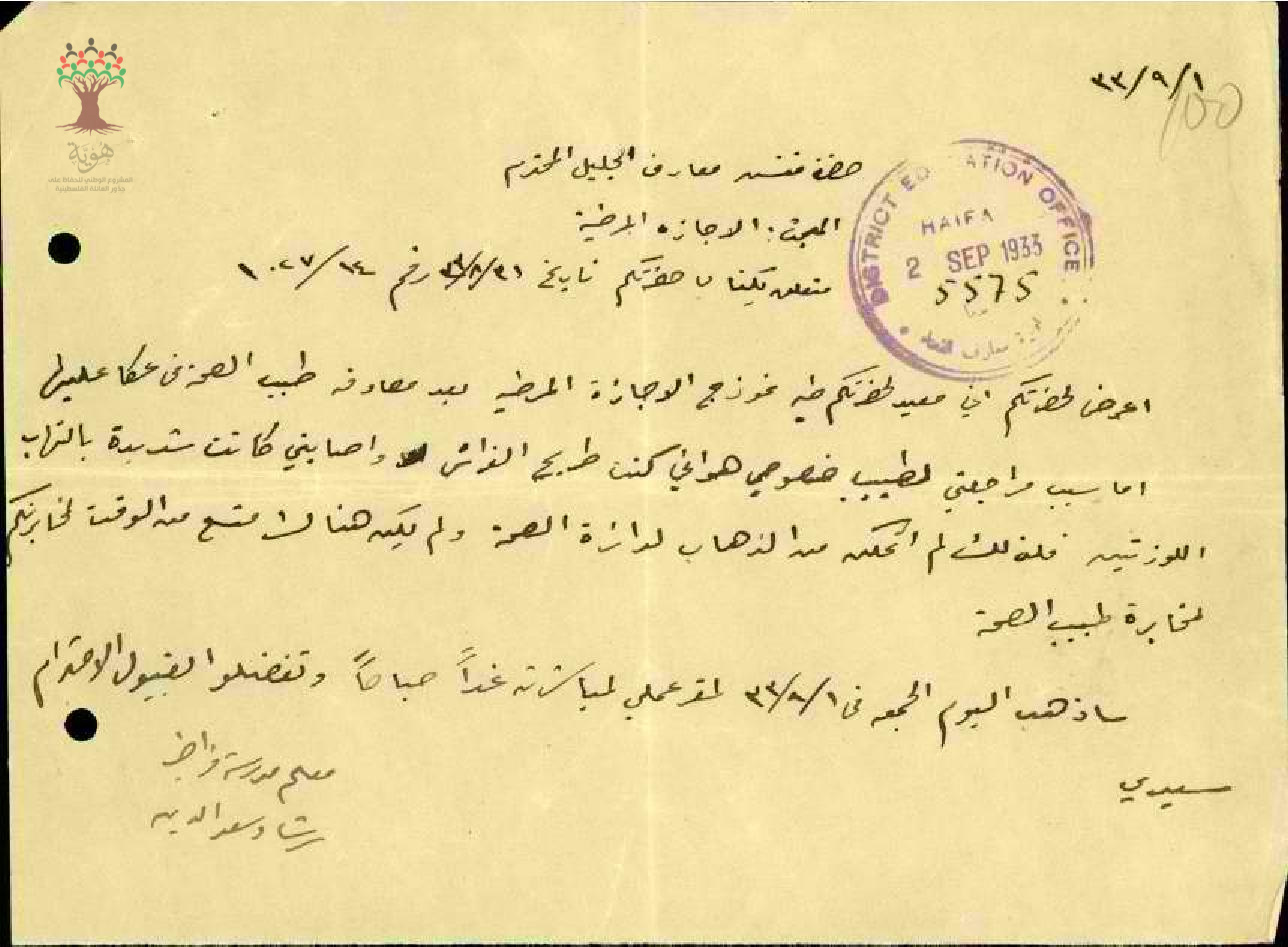 هوية
المشروع الوطني للحفاظ على
جذور العائلة الفلسطينية
٣٣/٩/١
100
حضرة مفتش معارف الجليل المحترم
المبحث: الاجازه المرضية
متعلق بكتاب حضرتكم تاريخ ٣٣/٨/٣١ رقم ١٠٢٧/١٤
DISTRICT EDUCATION OFFICE
HAIFA
2 SEP 1933
5575
اعرض لحضرتكم اني معيد لحضرتكم طيه نموذج الاجازة المرضيه بعد مصادقة طبيب الصحة في عكا عليها
اما سبب مراجعتي لطبيب خصوصي هو اني كنت طريح الفراش واصابتي كانت شديدة بالتهاب
اللوزتين فلذلك لم اتمكن من الذهاب لدائرة الصحة ولم يكن هنالك متسع من الوقت لمخابرتكم
لمخابرة طبيب الصحة
ساذهب اليوم الجمعه في ٣٣/٩/١ لمقر عملي لمباشرته غداً صباحاً وتفضلوا بقبول الاحترام
سيدي
معلم مدرسة
رشاد سعد الدين